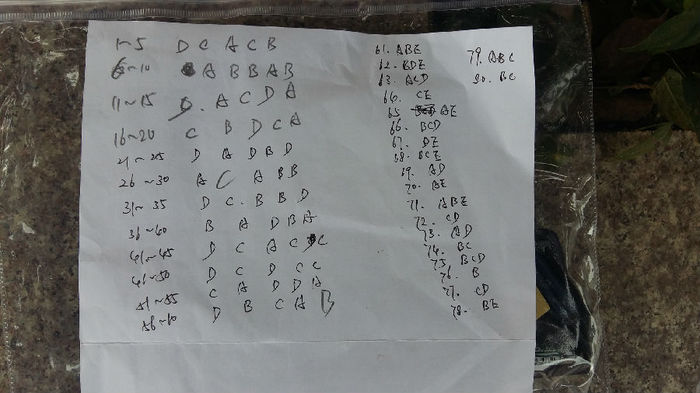 1~5 D C A C B
6~10 A B B A B
11~15 D. A C D A
16~20 C B D C A
21~25 D A D B D
26~30 A C A B B
31~35 D C. B B D
36~40 B A D B A
41~45 D C A C C
46~50 D C D C C
51~55 C A D D A
56~60 D B C A B
61. ABE
62. BDE
63. ACD
64. CE
65 AE
66. BCD
67. DE
68. BCE
69. AD
70. AE
71. ABE
72. CD
73. AD
74. BC
75 BCD
76. B
77. CD
78. BE
79. ABC
80. BC